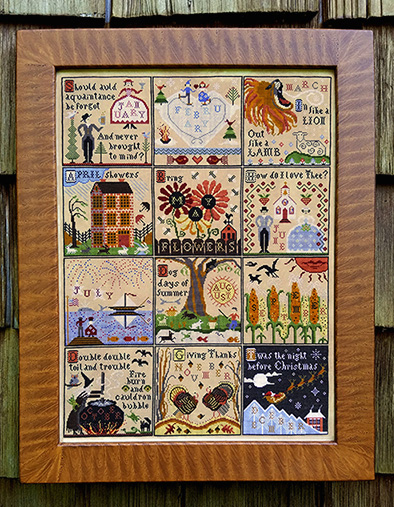 Should auld
aquaintance
be forgot
JAN
UARY
And never
brought
to mind?
FEBRU
AR
Y
MARCH
In
like a
LION
Out
like a
LAMB
APRIL showers
Bring
MAY
FLOWERS
How do I love Thee?
JU
NE
JULY
Dog
days of
Summer
AUGU
ST
Double double
toil and trouble
Fire
burn
and
cauldron
bubble
Giving Thanks
'Twas the night
before Christmas
DECEMBER